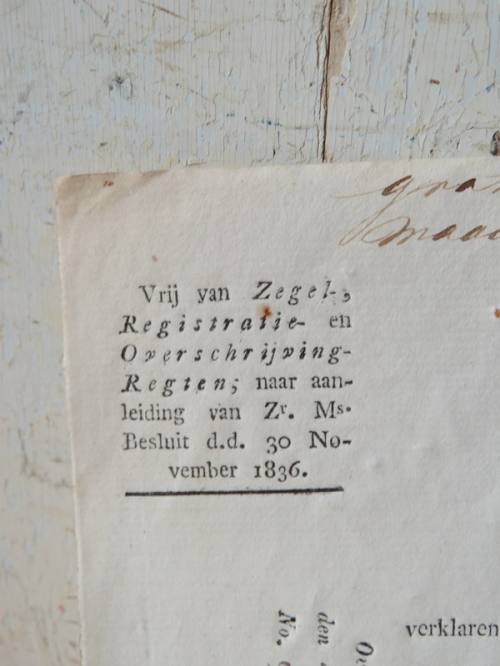 Vrij van Zegel-,
Registratie- en
Overschrijving-
Regten; naar aan-
leiding van Zr. Ms.
Besluit d.d. 30 No-
vember 1836.
verklaren
den
No.